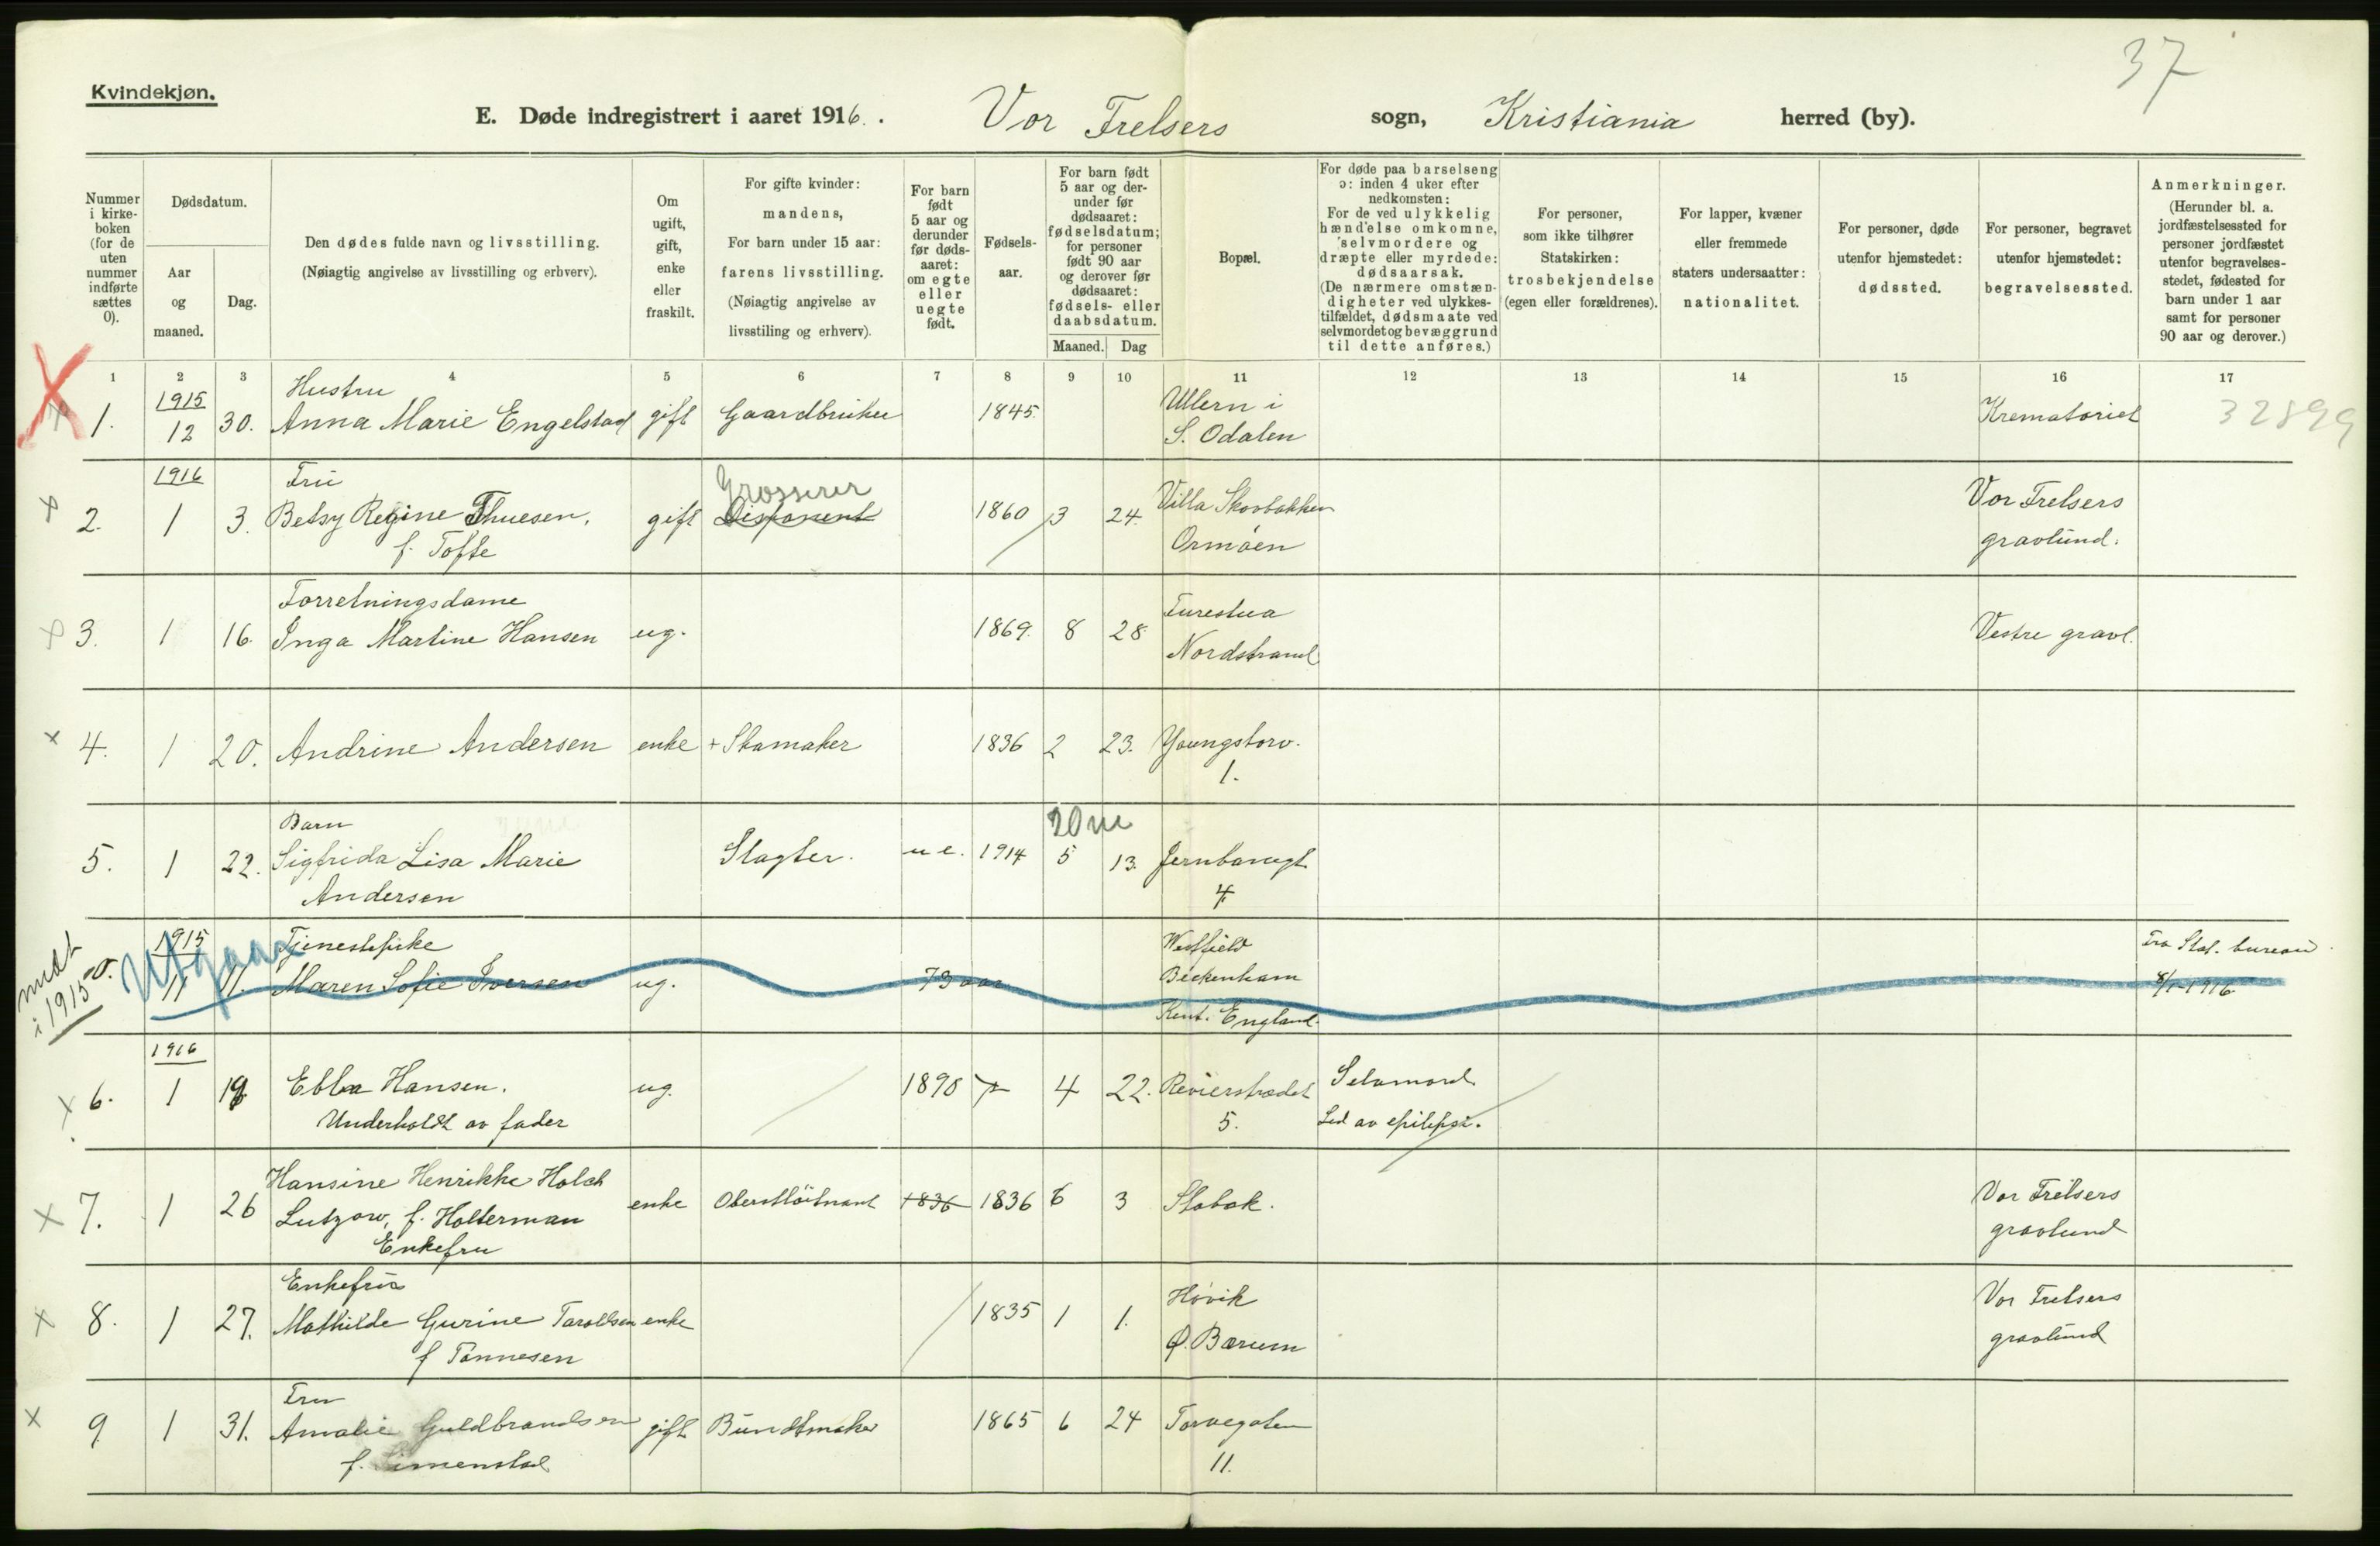 37
Kvindekjøn.
E. Døde indregistrert i aaret 1916. Vor Frelsers sogn, Kristiania herred (by).
Nummer i kirke-boken (for de uten nummer indførte sættes 0).
Dødsdatum.
Aar og maaned.
Dag.
Den dødes fulde navn og livsstilling.
(Nøiagtig angivelse av livsstilling og erhverv).
Om ugift, gift, enke eller fraskilt.
For gifte kvinder: mandens,
For barn under 15 aar: farens livsstilling.
(Nøiagtig angivelse av livsstiling og erhverv).
For barn født 5 aar og derunder før døds-aaret: om egte eller uegte født.
Fødsels-aar.
For barn født 5 aar og der-under før dødsaaret: fødselsdatum; for personer født 90 aar og derover før dødsaaret: fødsels- eller daabsdatum.
Maaned. Dag
Bopæl.
For døde paa barselseng ɔ: inden 4 uker efter nedkomsten:
For de ved ulykkelig hændelse omkomne, selvmordere og dræpte eller myrdede: dødsaarsak.
(De nærmere omstæn-digheter ved ulykkes-tilfældet, dødsmaate ved selvmordet og bevæggrund til dette anføres.)
For personer, som ikke tilhører Statskirken: trosbekjendelse (egen eller forældrenes).
For lapper, kvæner eller fremmede staters undersaatter: nationalitet.
For personer, døde utenfor hjemstedet: dødssted.
For personer, begravet utenfor hjemstedet: begravelsessted.
Anmerkninger.
(Herunder bl. a. jordfæstelsessted for personer jordfæstet utenfor begravelses-stedet, fødested for barn under 1 aar samt for personer 90 aar og derover.)
1 2 3 4 5 6 7 8 9 10 11 12 13 14 15 16 17
X 1. 1915 12 30. Hustru
Anna Marie Engelstad gift Gaardbruker 1845 Ullern i
S. Odalen Krematoriet 32899
x 2. 1916 1 3. Fru
Betsy Regine Thuesen, f. Tofte gift Grosserer Disponent 1860 3 24. Villa Skovbakken
Ormøen Vor Frelsers
gravlund.
x 3. 1 16. Forretningsdame
Inga Martine Hansen ug. 1869. 8 28
Nordstrand Vestre gravl.
x 4. 1 20. Andrine Andersen enke + Skomaker 1836 2 23. Youngstorv.
1.
5. 1 22. Barn
Sigfrida Lisa Marie
Andersen Slagter. u e. 1914 20 m 5 13. Jernbanegt
4
mdt i 1915 0. Utgaar 1915 11 11. Tjenestepike
Maren Sofie Iversen ug. 73 aar Westfield
Beckenham
Kent. England. Fra Stat. bureau
8/1-1916.
x 6. 1916 1 18 Ebba Hansen.
Underholdt av fader ug. 1890 4 22. Revierstrædet
5. Selvmord
Led av epilepsi.
x 7. 1 26 Hansine Henrikke Holck
Lutzow, f. Holterman
Enkefru enke Oberstløitnant 1836 1836 6 3 Stabæk. Vor Frelsers
gravlund
x 8. 1 27. Enkefru
Mathilde Gurine Taraldsen
f Tønnesen enke 1835 1 1. Høvik
Ø. Bærum Vor Frelsers
gravlund
x 9. 1 31. Fru
Amalie Guldbrandsen
f. Simenstad gift Buntmaker 1865 6 24 Torvegaten
11.